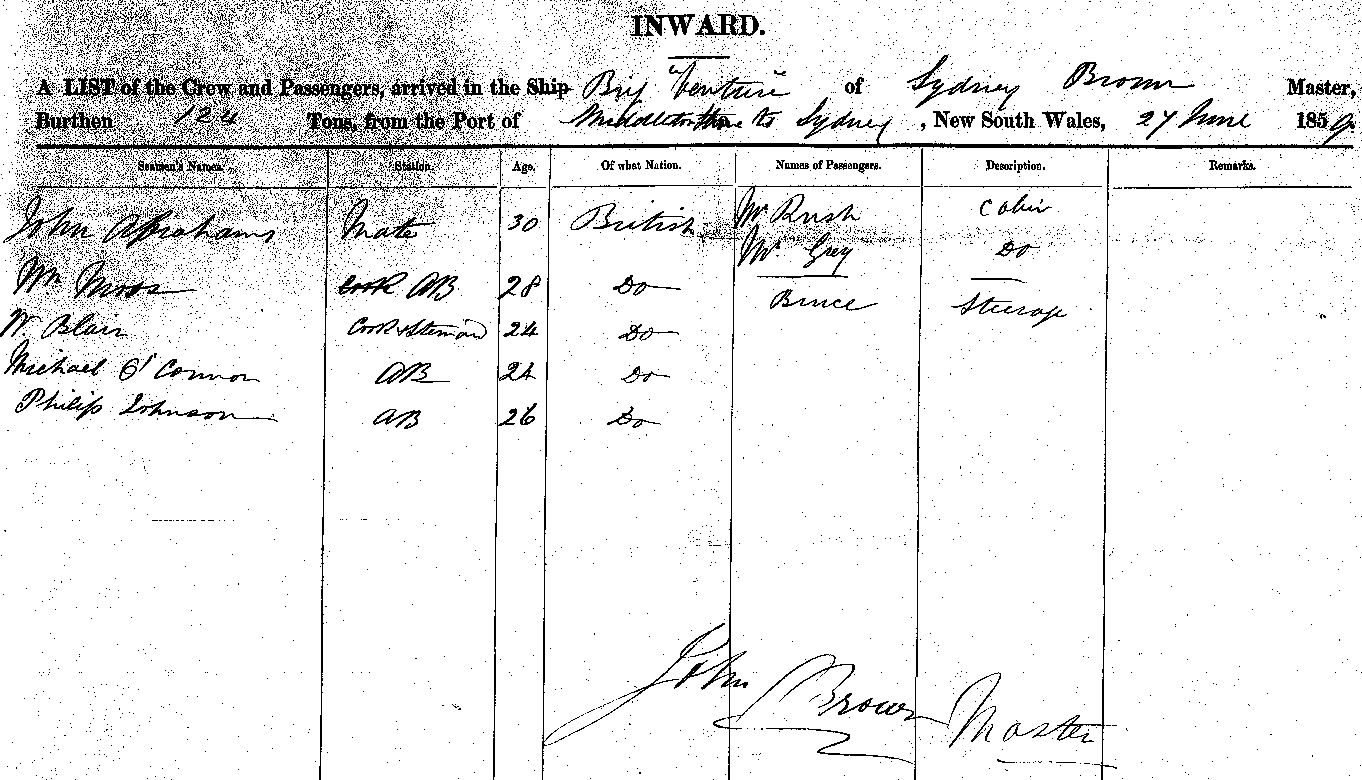 INWARD.
A LIST of the Crew and Passengers, arrived in the Ship Brig "Venture" of Sydney Brown Master,
Burthen 124 Tons, from the Port of to Sydney, New South Wales, 27 June 1859.
Seamen's Names. Station. Age. Of what Nation. Names of Passengers. Description. Remarks.
John Abrahams Mate 30 British Mr Rush Cabin
Mr Grey Do
Wm Moss Cook AB 28 Do Bruce Steerage
W Blair Cook & Steward 24 Do
Michael O'Connor AB 24 Do
Philip Johnson AB 26 Do
John Brown Master